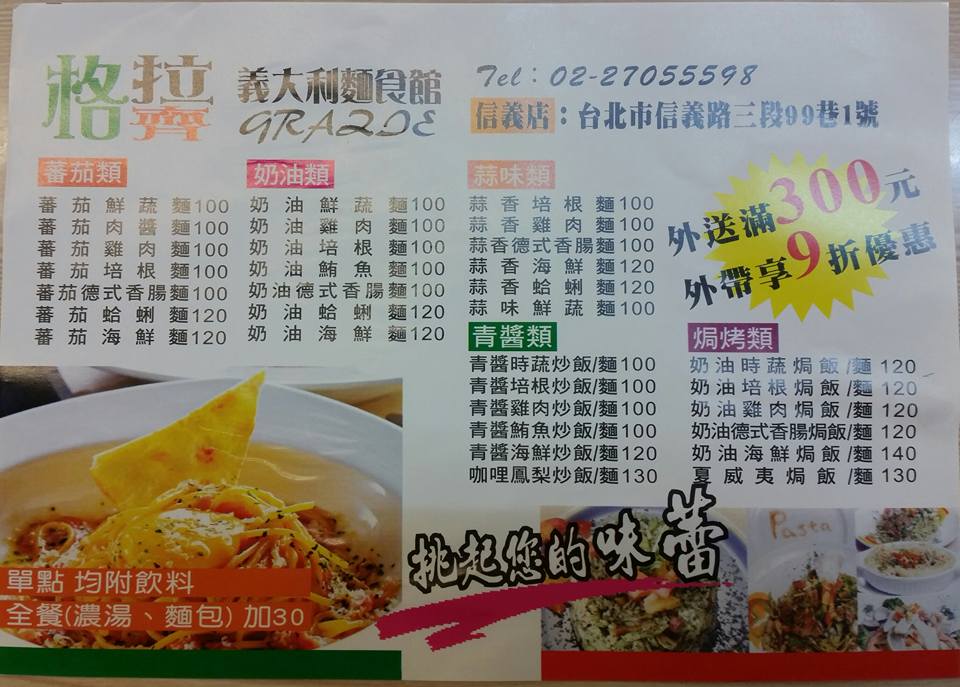 格拉齊
義大利麵食館
GRAZIE
Tel：02-27055598
信義店：台北市信義路三段99巷1號
蕃茄類
蕃茄鮮蔬麵100
蕃茄肉醬麵100
蕃茄雞肉麵100
蕃茄培根麵100
蕃茄德式香腸麵100
蕃茄蛤蜊麵120
蕃茄海鮮麵120
奶油類
奶油鮮蔬麵100
奶油雞肉麵100
奶油培根麵100
奶油鮪魚麵100
奶油德式香腸麵100
奶油蛤蜊麵120
奶油海鮮麵120
蒜味類
蒜香培根麵100
蒜香雞肉麵100
蒜香德式香腸麵100
蒜香海鮮麵120
蒜香蛤蜊麵120
蒜味鮮蔬麵100
外送滿300元
外帶享9折優惠
青醬類
青醬時蔬炒飯/麵100
青醬培根炒飯/麵100
青醬雞肉炒飯/麵100
青醬鮪魚炒飯/麵100
青醬海鮮炒飯/麵120
咖哩鳳梨炒飯/麵130
焗烤類
奶油時蔬焗飯/麵 120
奶油培根焗飯/麵 120
奶油雞肉焗飯/麵 120
奶油德式香腸焗飯/麵 120
奶油海鮮焗飯/麵 140
夏威夷焗飯/麵 130
挑起您的味蕾
Pasta
單點 均附飲料
全餐(濃湯、麵包) 加30